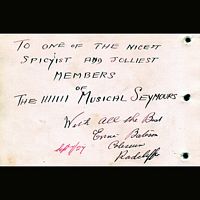 To one of the nicest
spicyist and jolliest
members
of
The !!!!!! Musical Seymours
With all the Best
Ernie
Coliseum
Radcliffe